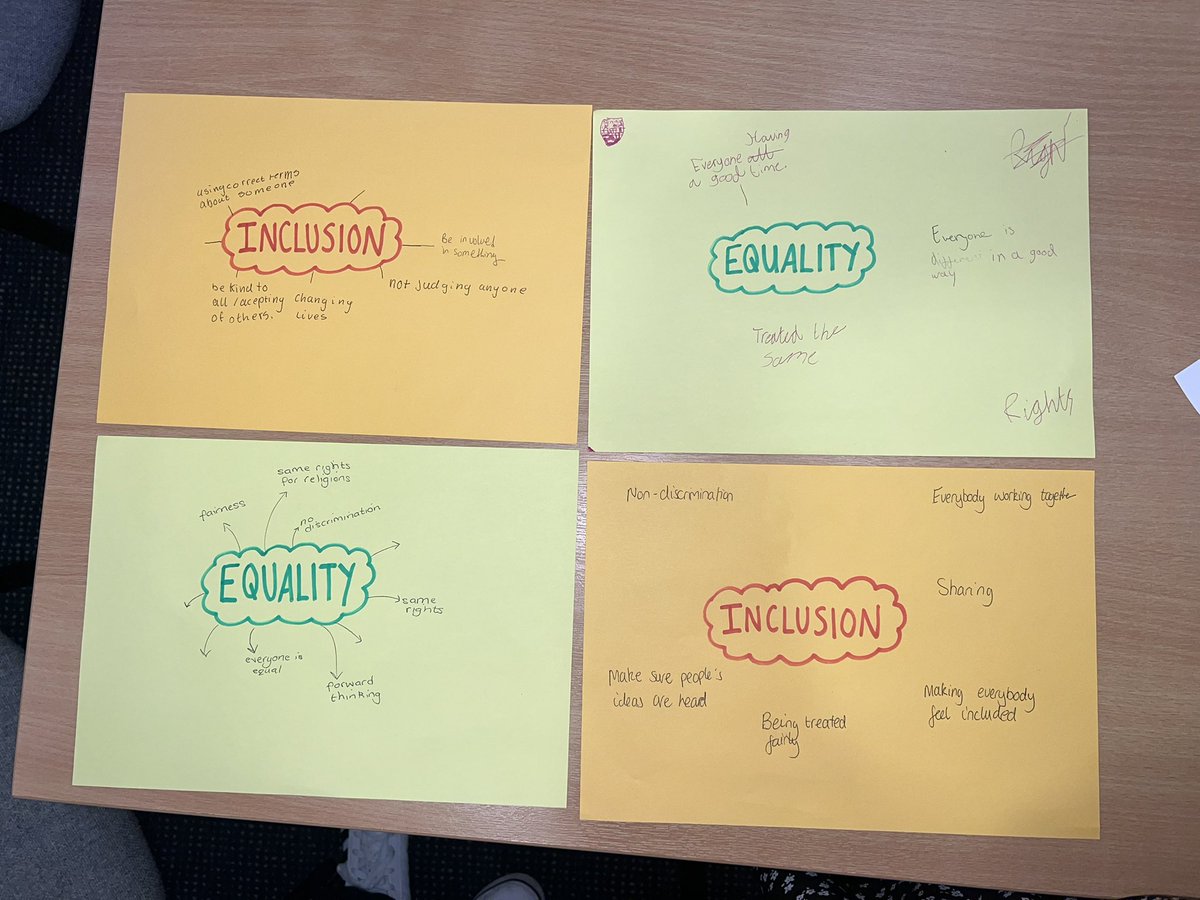 using correct terms
about someone
INCLUSION
Be involved
in something
be kind to
all/acepting
of others.
Changing
lives
not judging anyone
Having
Everyone all
a good time.
EQUALITY
Everyone is
different in a good
way
Treated the
same
Rights
same rights
for religions
fairness
no
discrimination
EQUALITY
same
rights
everyone is
equal
forward
thinking
Non-discrimination
Everybody working together
Sharing
INCLUSION
Make sure people's
ideas are heard
Being treated
fairly
Making everybody
feel included